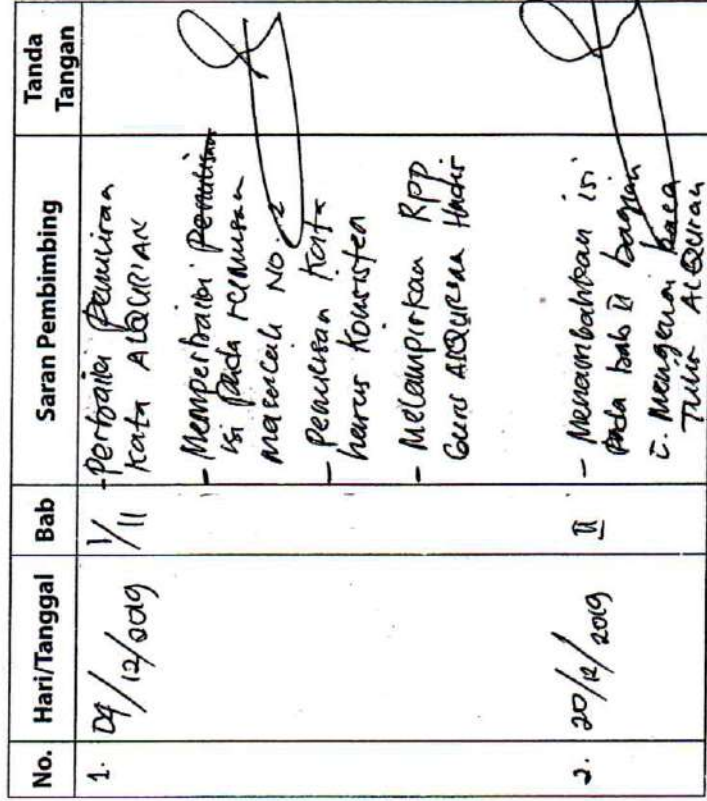 No. Hari/Tanggal Bab Saran Pembimbing Tanda Tangan
1. 04/12/2019 I/II - Perbaiki Penulisan
Kata ALQUR'AN
- Memperbaiki Penulisan
isi pada rumusan
masalah NO. 2
- Penulisan Kata
harus Konsisten
- Melampirkan RPP
Guru ALQURAN Hadis
2. 20/12/2019 II - Menambahkan isi
Pada bab II bagian
C. Mengenai baca
Tulis ALQuran